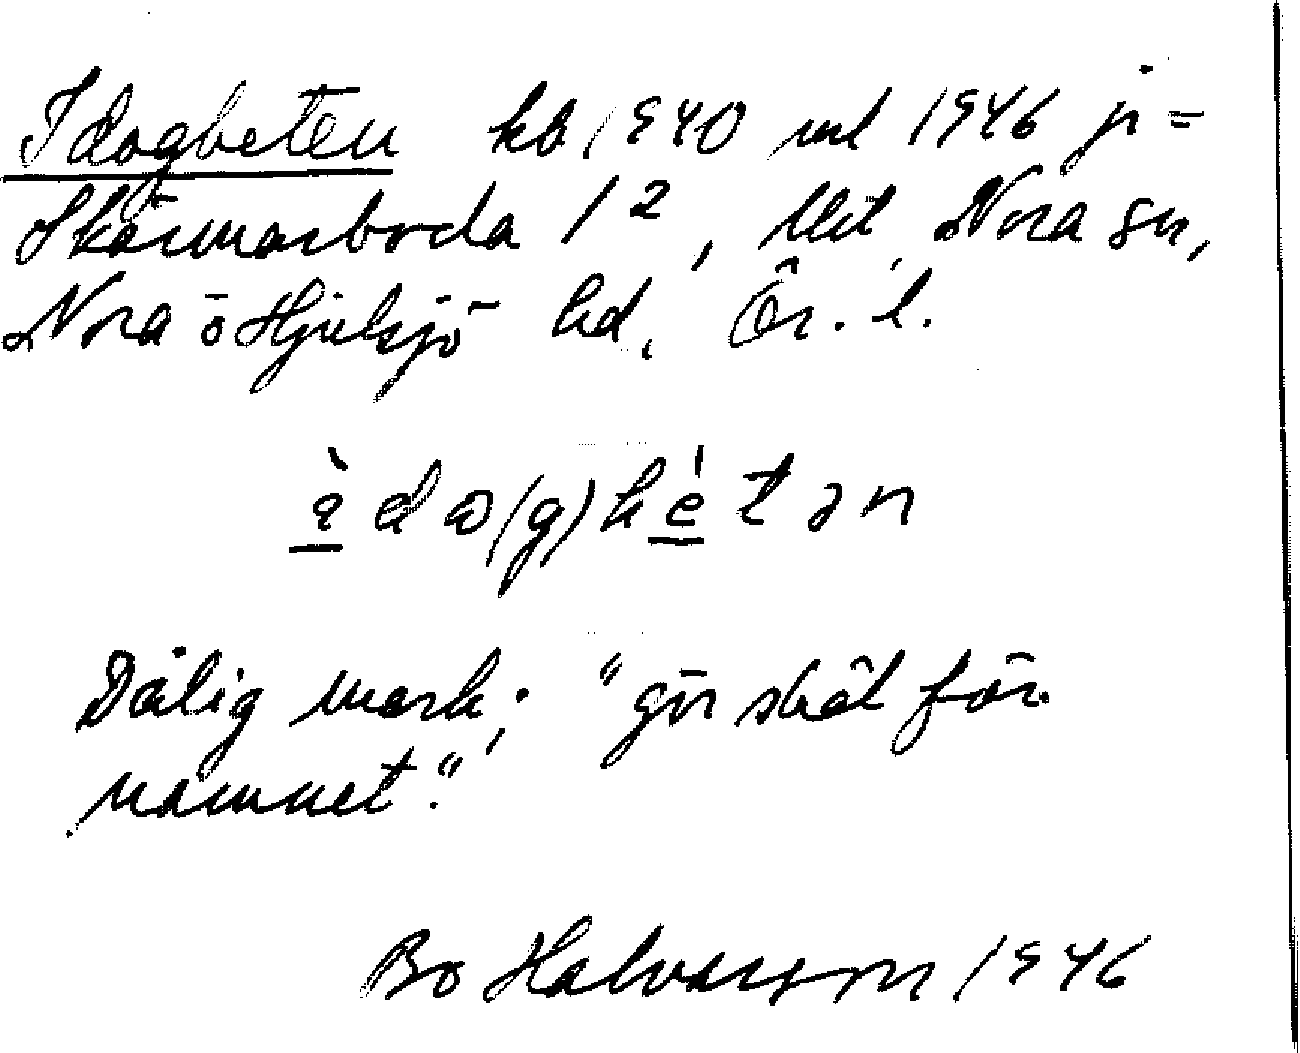 Idogheten kb 1940 uml 1946 jr =
Skärmarboda 1², Utsk. Nora sn,
Nora o Hjulsjö hd, Ör. l.
ìdɷ(g)hétən
Dålig mark; "gör skäl för
namnet".
Bo Halvarsson 1946